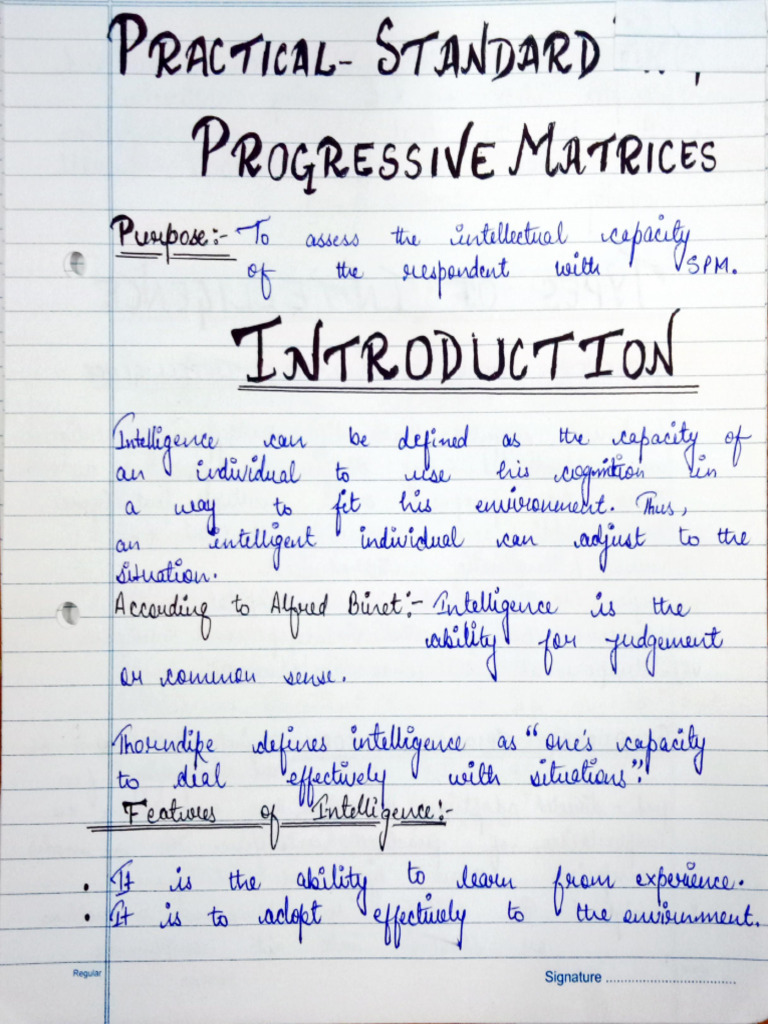 PRACTICAL- STANDARD
PROGRESSIVE MATRICES
Purpose:- To assess the intellectual capacity
of the respondent with SPM.
INTRODUCTION
Intelligence can be defined as the capacity of
an individual to use his cognition in
a way to fit his environment. Thus,
an intelligent individual can adjust to the
situation.
According to Alfred Binet:- Intelligence is the
ability for judgement
or common sense.
Thorndike defines intelligence as "one's capacity
to dial effectively with situations".
Features of Intelligence:-
• It is the ability to learn from experience.
• It is to adopt effectively to the enviirnment.
Regular
Signature ....................................